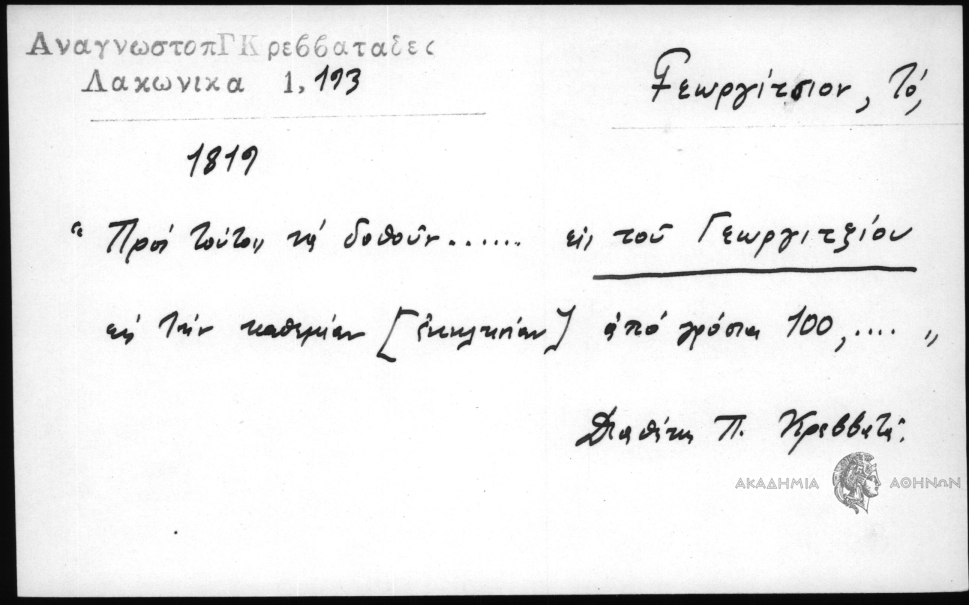 ΑναγνωστοπΓΚρεββαταδες
Λακωνικα 1, 193
Γεωργίτσιον, Τό,
1819
“ Πρός τούτοις νά δοθοῦν...... εἰς τοῦ Γεωργιτζίου
εἰς τήν καθεμίαν [ἐκκλησίαν] ἀπό γρόσια 100,.... „
Διαθήκη Π. Κρεββατᾶ.
ΑΚΑΔΗΜΙΑ ΑΘΗΝΩΝ